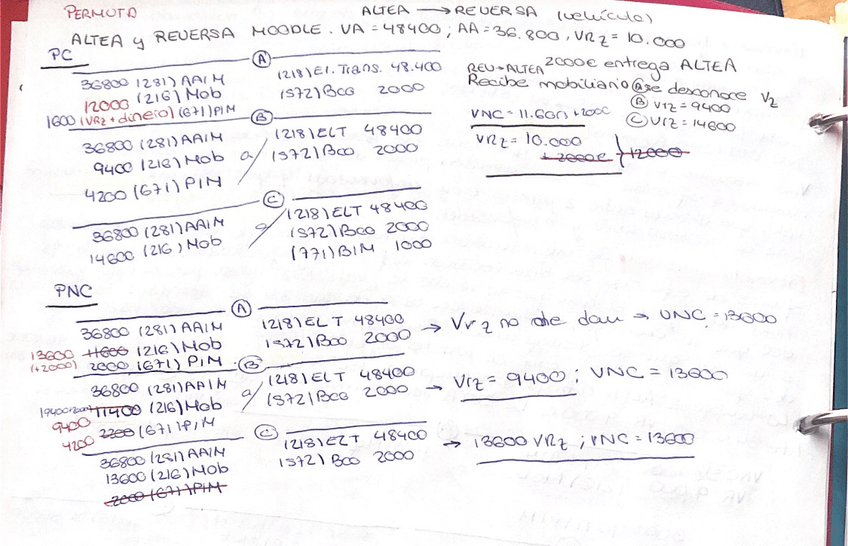 PERMUTA
ALTEA → REVERSA (vehículo)
ALTEA y REVERSA MOODLE. VA = 48400; AA = 36.800, VRz = 10.000
PC
A
36800 (281) AAIM
12000 (216) Mob
1600 (VRz + dinero) (671) PIM
(218) El. Trans. 48.400
(572) Bco 2000
REV→ALTEA 2000€ entrega ALTEA
Recibe mobiliario A se desconoce Vz
B Vrz = 9400
C Vrz = 14600
VNC = 11.600 + 2000
VRz = 10.000
+ 2000€ } 12000
B
36800 (281) AAIM
9400 (216) Mob
4200 (671) PIM
a (218) ELT 48400
(572) Bco 2000
C
36800 (281) AAIM
14600 (216) Mob
a (218) ELT 48400
(572) Bco 2000
(771) BIM 1000
PNC
A
36800 (281) AAIM
13600 11600 (216) Mob
(+2000) 2000 (671) PIM
(218) ELT 48400
(572) Bco 2000
→ Vrz no me dan → VNC = 13600
B
36800 (281) AAIM
11400 (216) Mob
9400
4200 2200 (671) PIM
a (218) ELT 48400
(572) Bco 2000
→ Vrz = 9400; VNC = 13600
C
36800 (281) AAIM
13600 (216) Mob
2000 (671) PIM
(218) ELT 48400
(572) Bco 2000
→ 13600 VRz; VNC = 13600